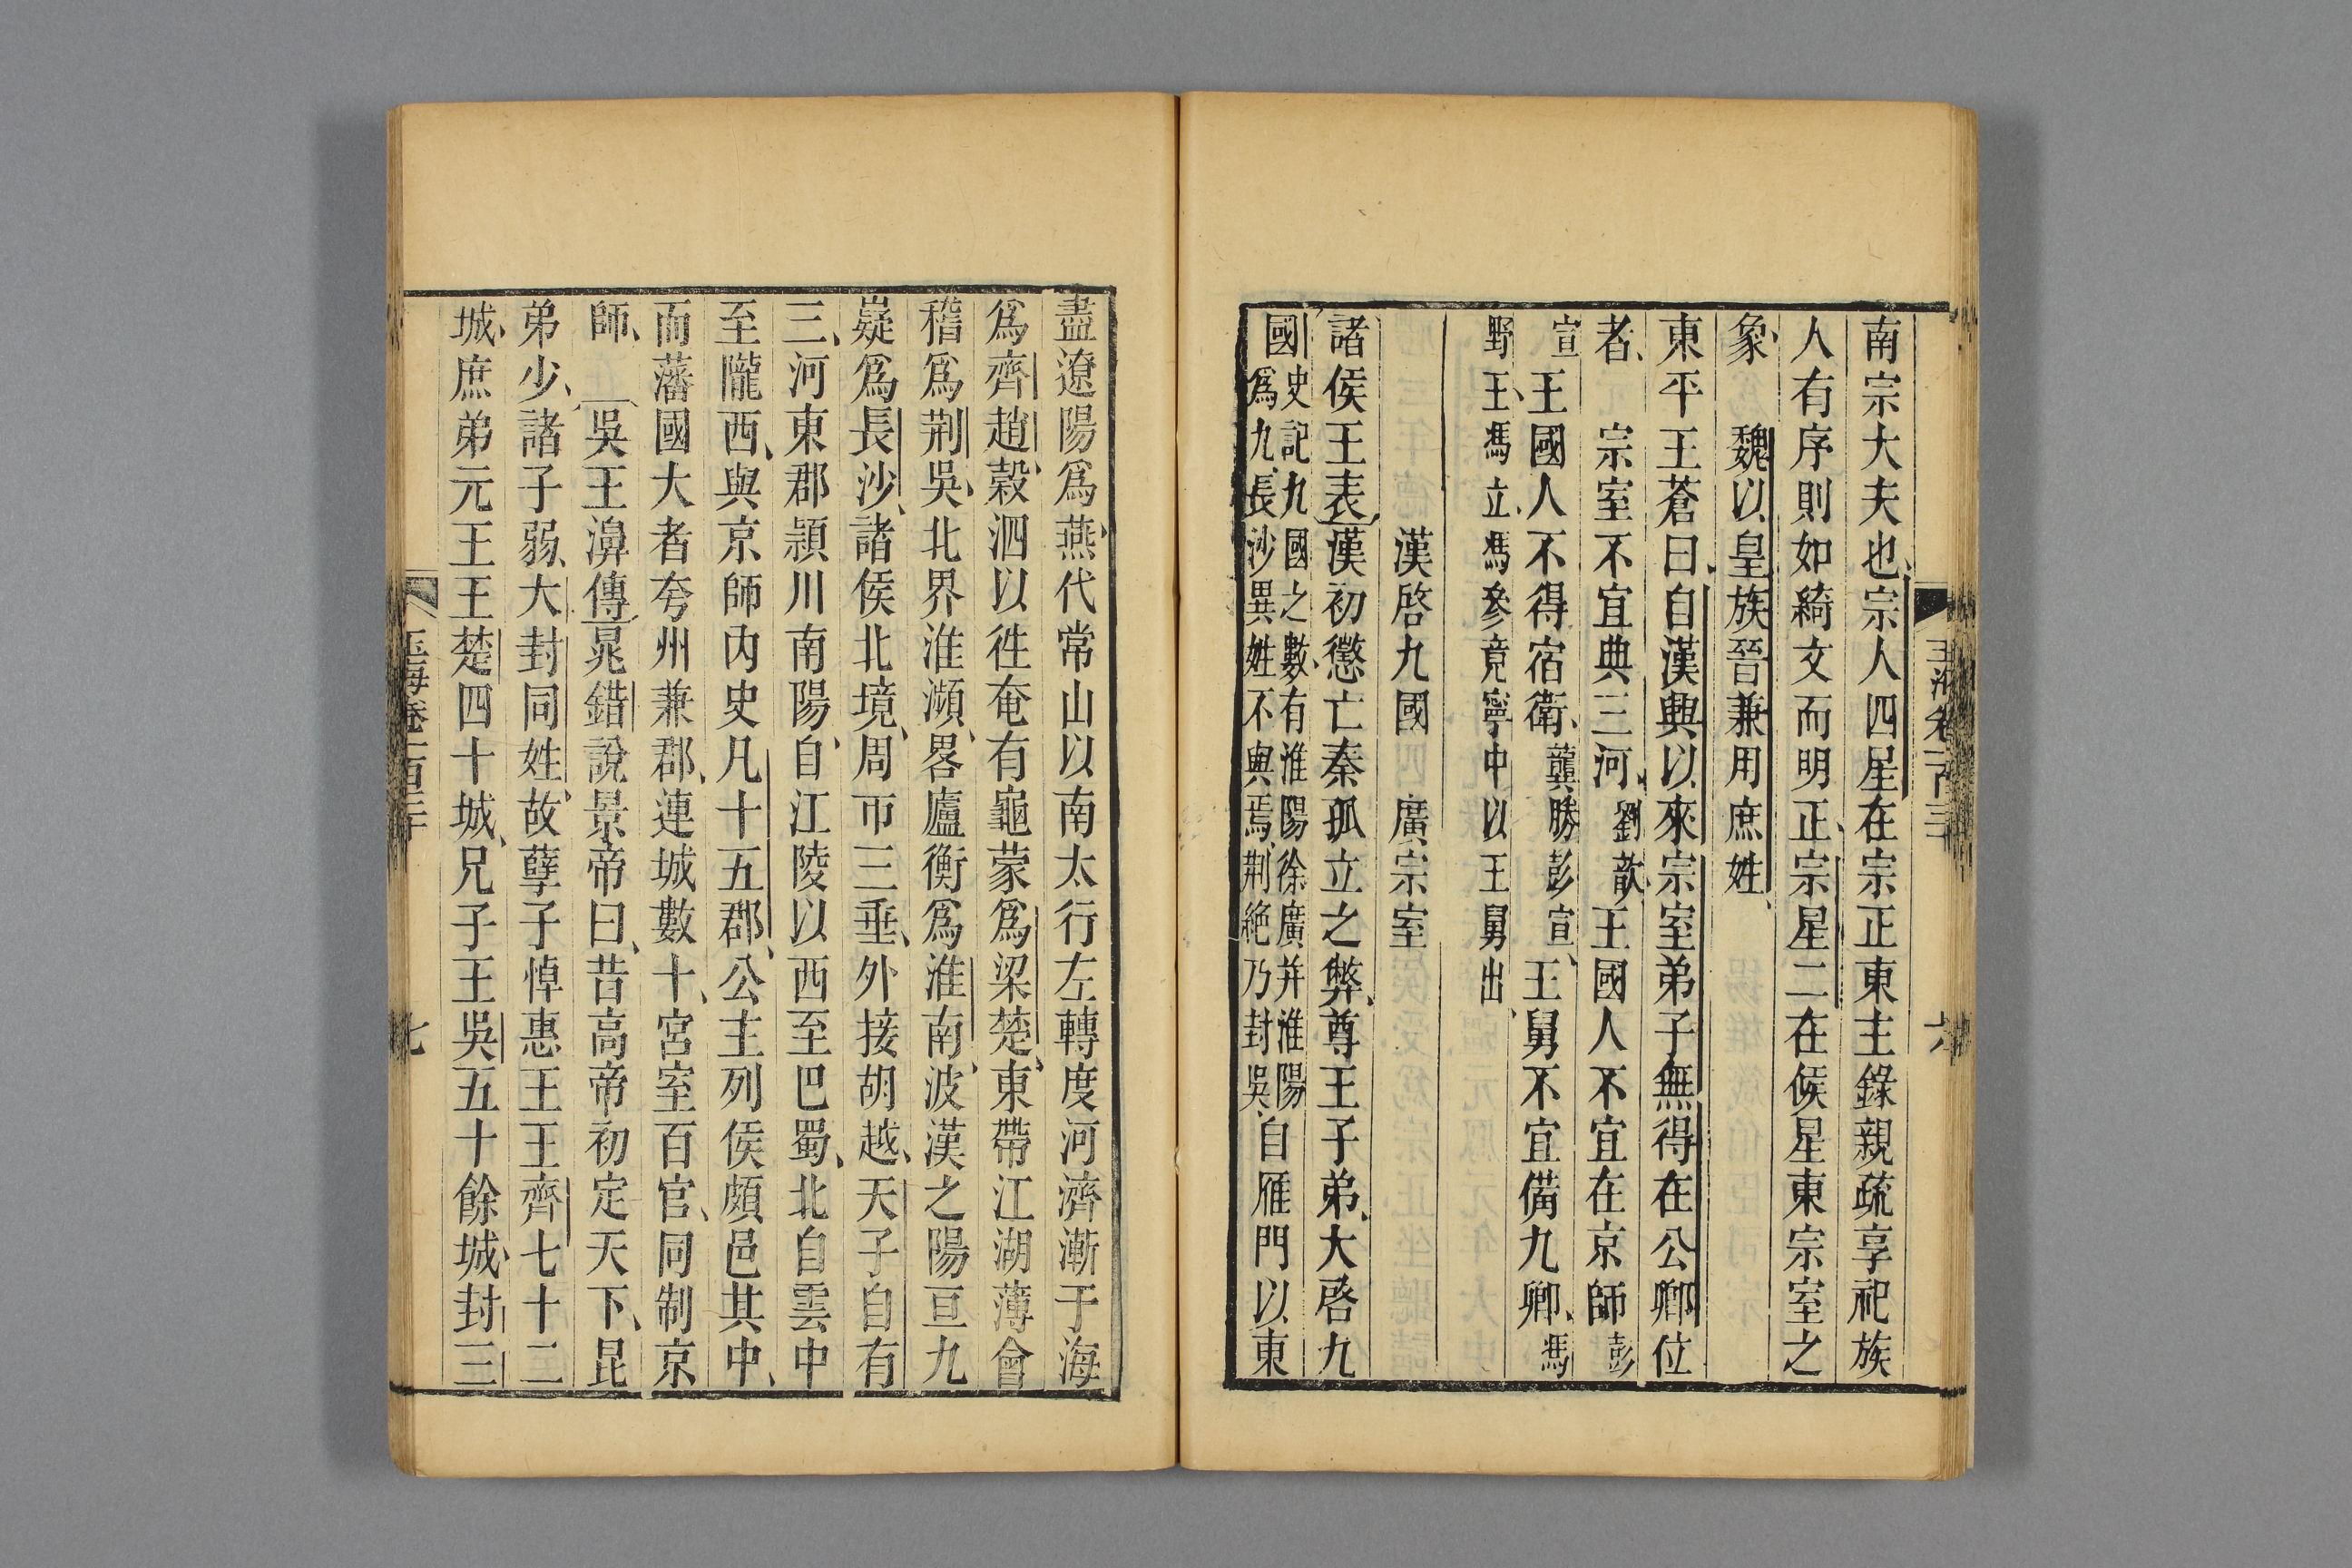 南宗大夫也宗人四星在宗正東主錄親疏享祀族
人有序則如綺文而明正宗星二在候星東宗室之
象　魏以皇族晉兼用庶姓
東平王蒼曰自漢興以來宗室弟子無得在公卿位
者　宗室不宜典三河劉歆王國人不宜在京師彭
宣王國人不得宿衛龔勝彭宣王舅不宜備九卿馮
野王馮立馮參竟寧中以王舅出
漢啓九國　廣宗室
諸侯王表漢初懲亡秦孤立之弊尊王子弟大啓九
國史記九國之數有淮陽徐廣并淮陽
爲九長沙異姓不與焉荆絶乃封吳自雁門以東
盡遼陽爲燕代常山以南太行左轉度河濟漸于海
爲齊趙穀泗以徃奄有龜蒙爲梁楚東帶江湖薄會
稽爲荆吳北界淮瀕畧廬衡爲淮南波漢之陽亘九
嶷爲長沙諸侯北境周帀三垂外接胡越天子自有
三河東郡潁川南陽自江陵以西至巴蜀北自雲中
至隴西與京師內史凡十五郡公主列侯頗邑其中
而藩國大者夸州兼郡連城數十宮室百官同制京
師　吳王濞傳晁錯說景帝曰昔高帝初定天下昆
弟少諸子弱大封同姓故孽子悼惠王王齊七十二
城庶弟元王王楚四十城兄子王吳五十餘城封三
玉海卷一百三十
七